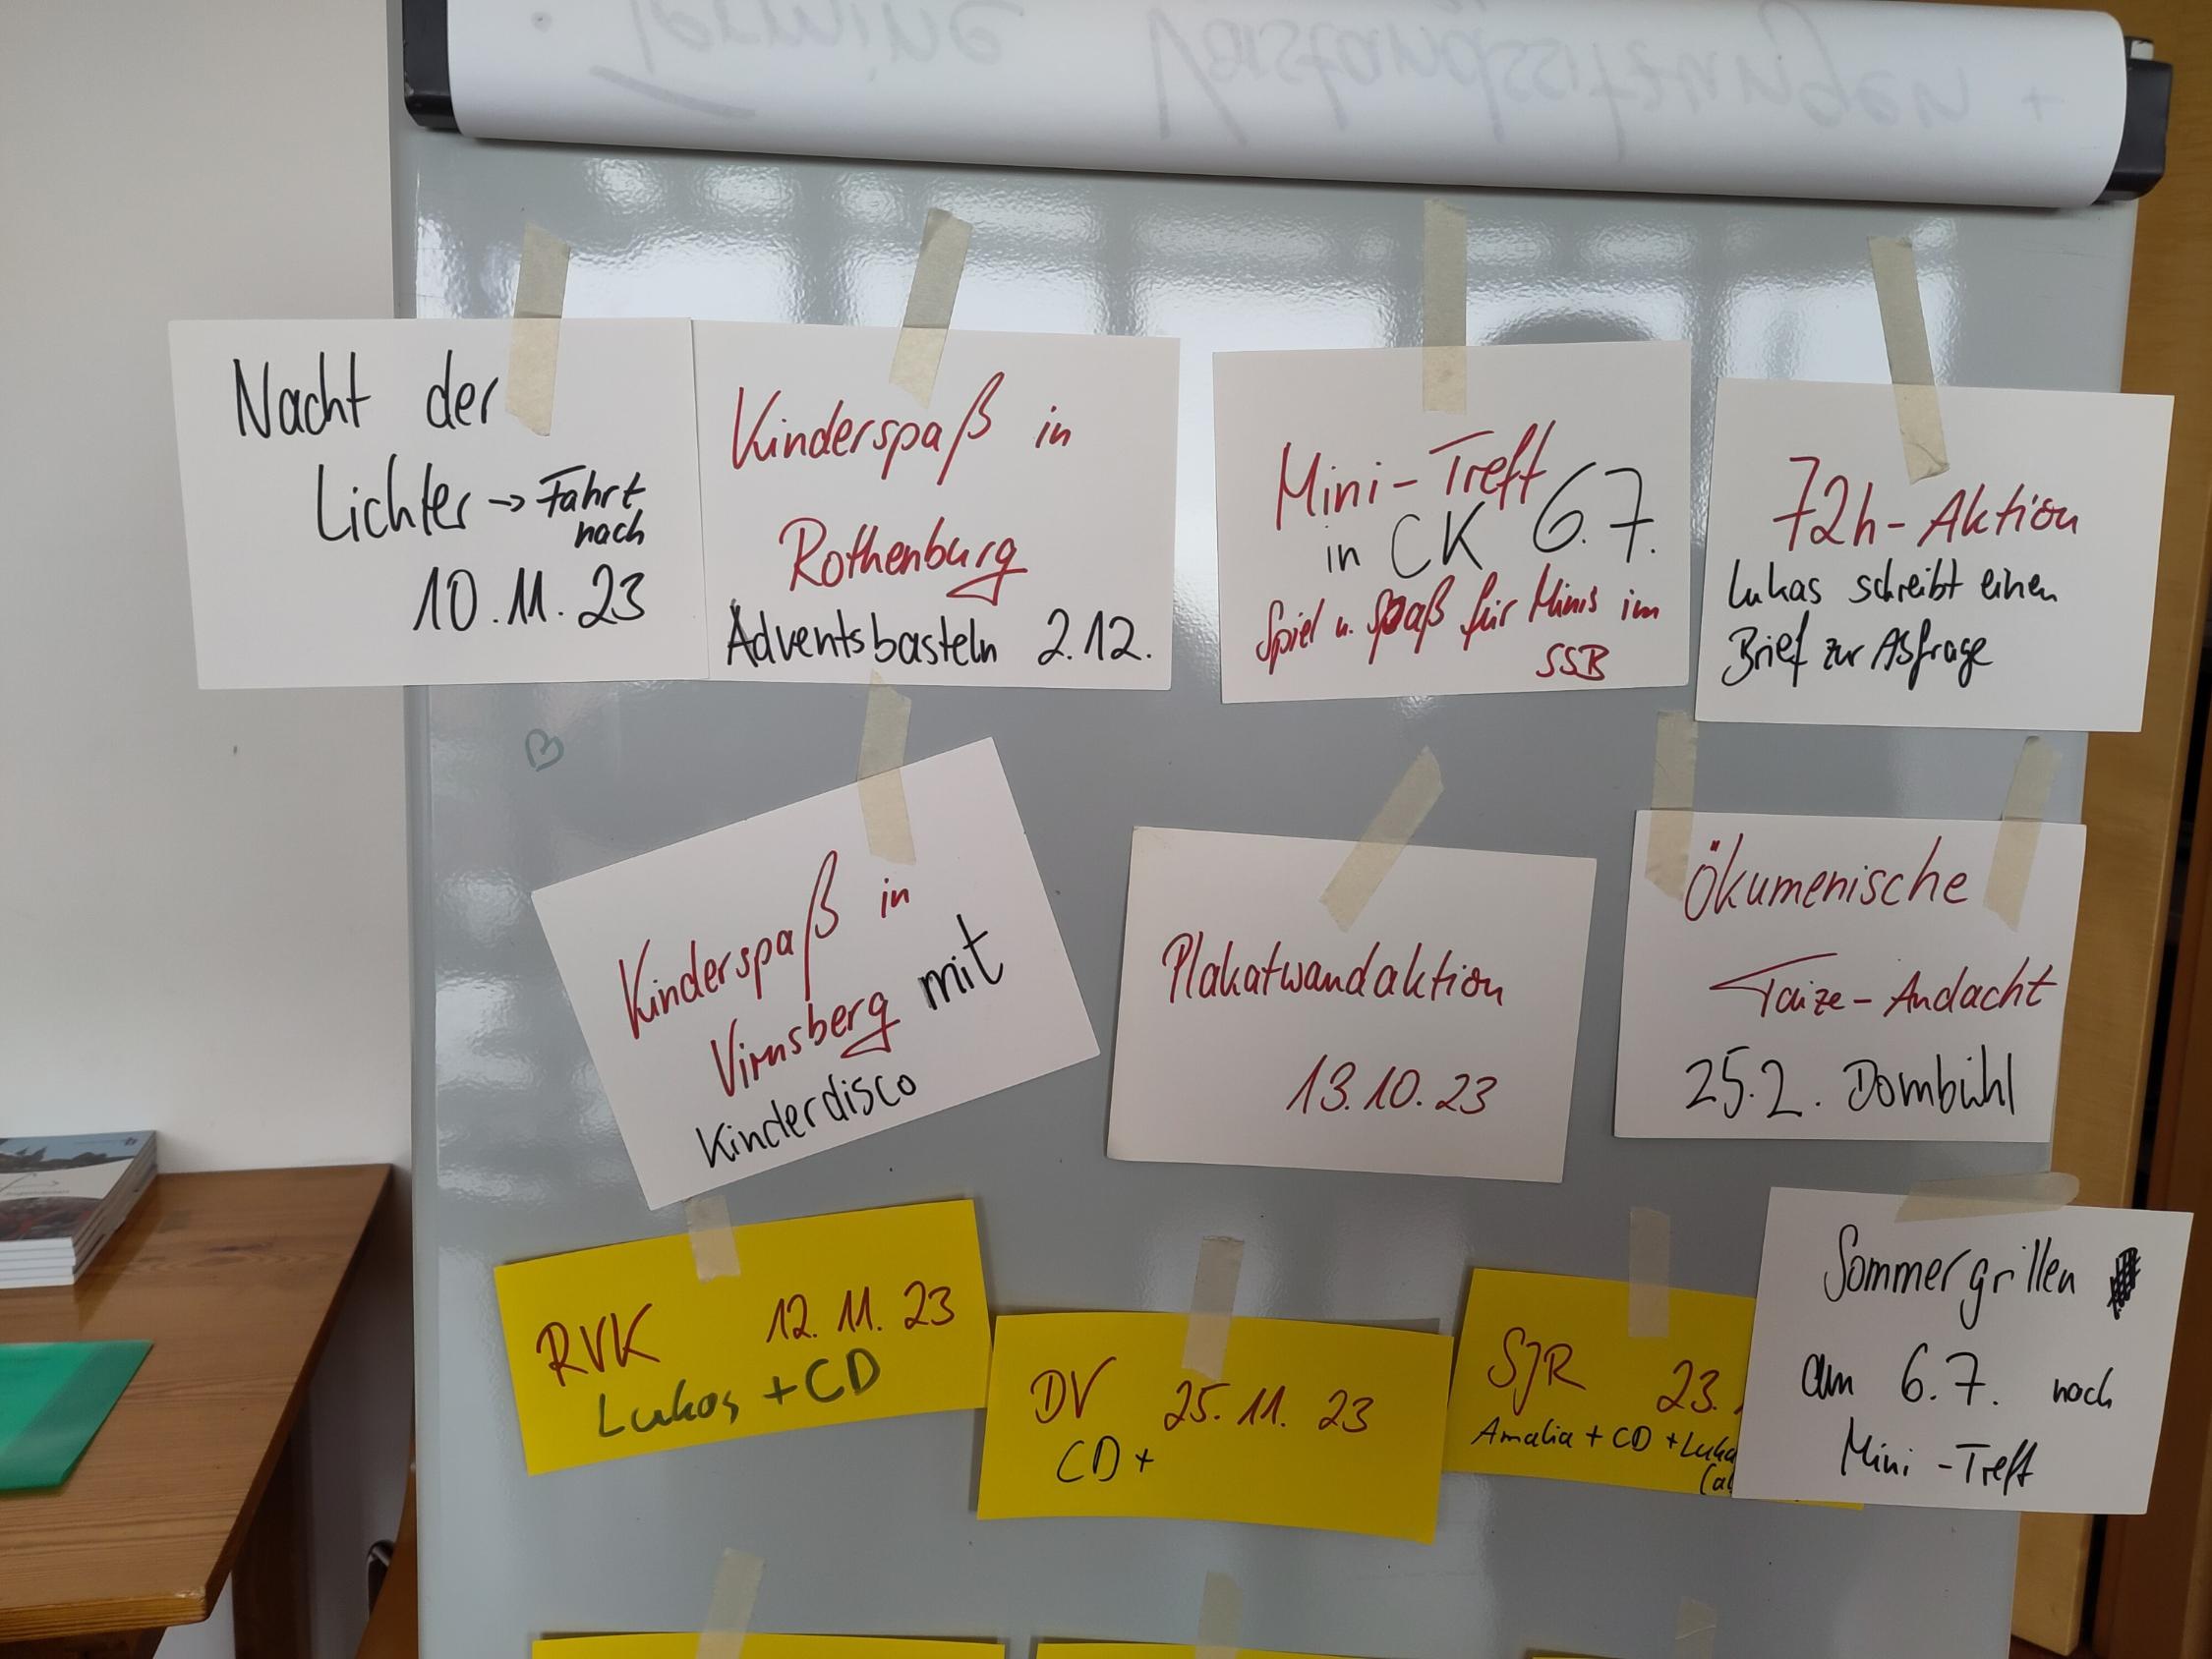 Termine
Vorstandssitzungen +
Nacht der
Lichter → Fahrt
nach
10.11.23
Kinderspaß in
Rothenburg
Adventsbasteln 2.12.
Mini-Treff
in CK 6.7.
Spiel u. Spaß für Minis im
SSB
72h-Aktion
Lukas schreibt einen
Brief zur Abfrage
Kinderspaß in
Virnsberg mit
Kinderdisco
Plakatwandaktion
13.10.23
Ökumenische
Taize-Andacht
25.2. Dombühl
RVK 12.11.23
Lukas + CD
DV 25.11.23
CD +
SJR 23.
Amalia + CD + Luka
(al
Sommergrillen
am 6.7. nach
Mini-Treff